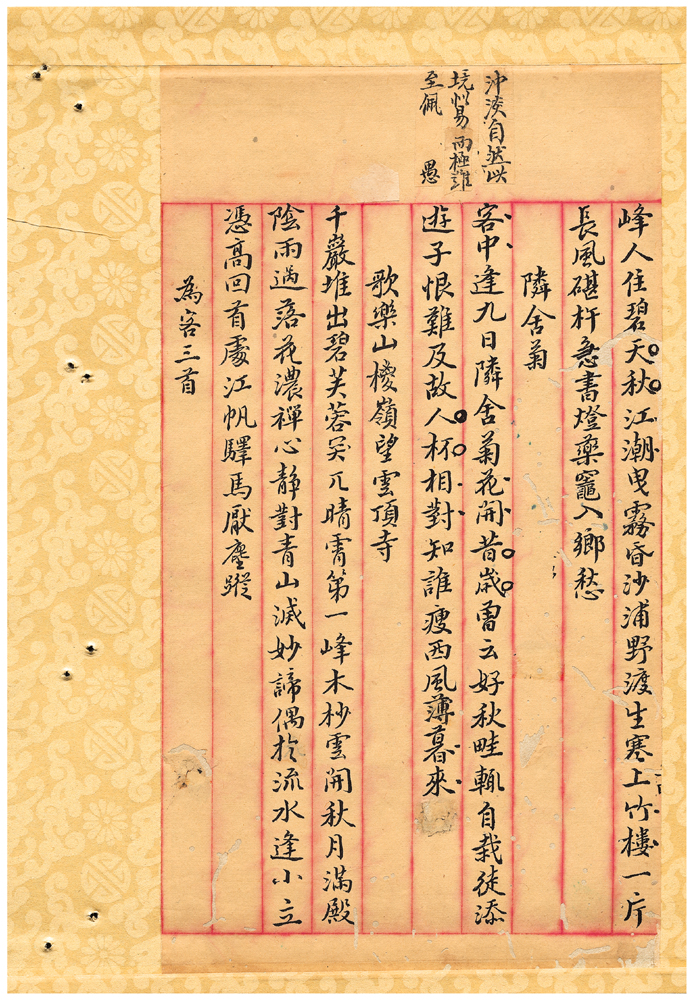 沖淡自然此
境似易而極難
至佩 愚
峰人住碧天秋江潮曳霧昏沙浦野渡生寒上竹樓一片
長風碪杵急書燈藥竈入鄉愁
隣舍菊
客中逢九日隣舍菊花開昔歲曾云好秋畦輒自栽徒添
遊子恨難及故人杯相對知誰瘦西風薄暮來
歌樂山椶嶺望雲頂寺
千巖堆出碧芙蓉突兀晴霄第一峰木杪雲開秋月滿殿
陰雨過落花濃禪心靜對青山滅妙諦偶於流水逢小立
憑高回首處江帆驛馬厭塵蹤
為客三首